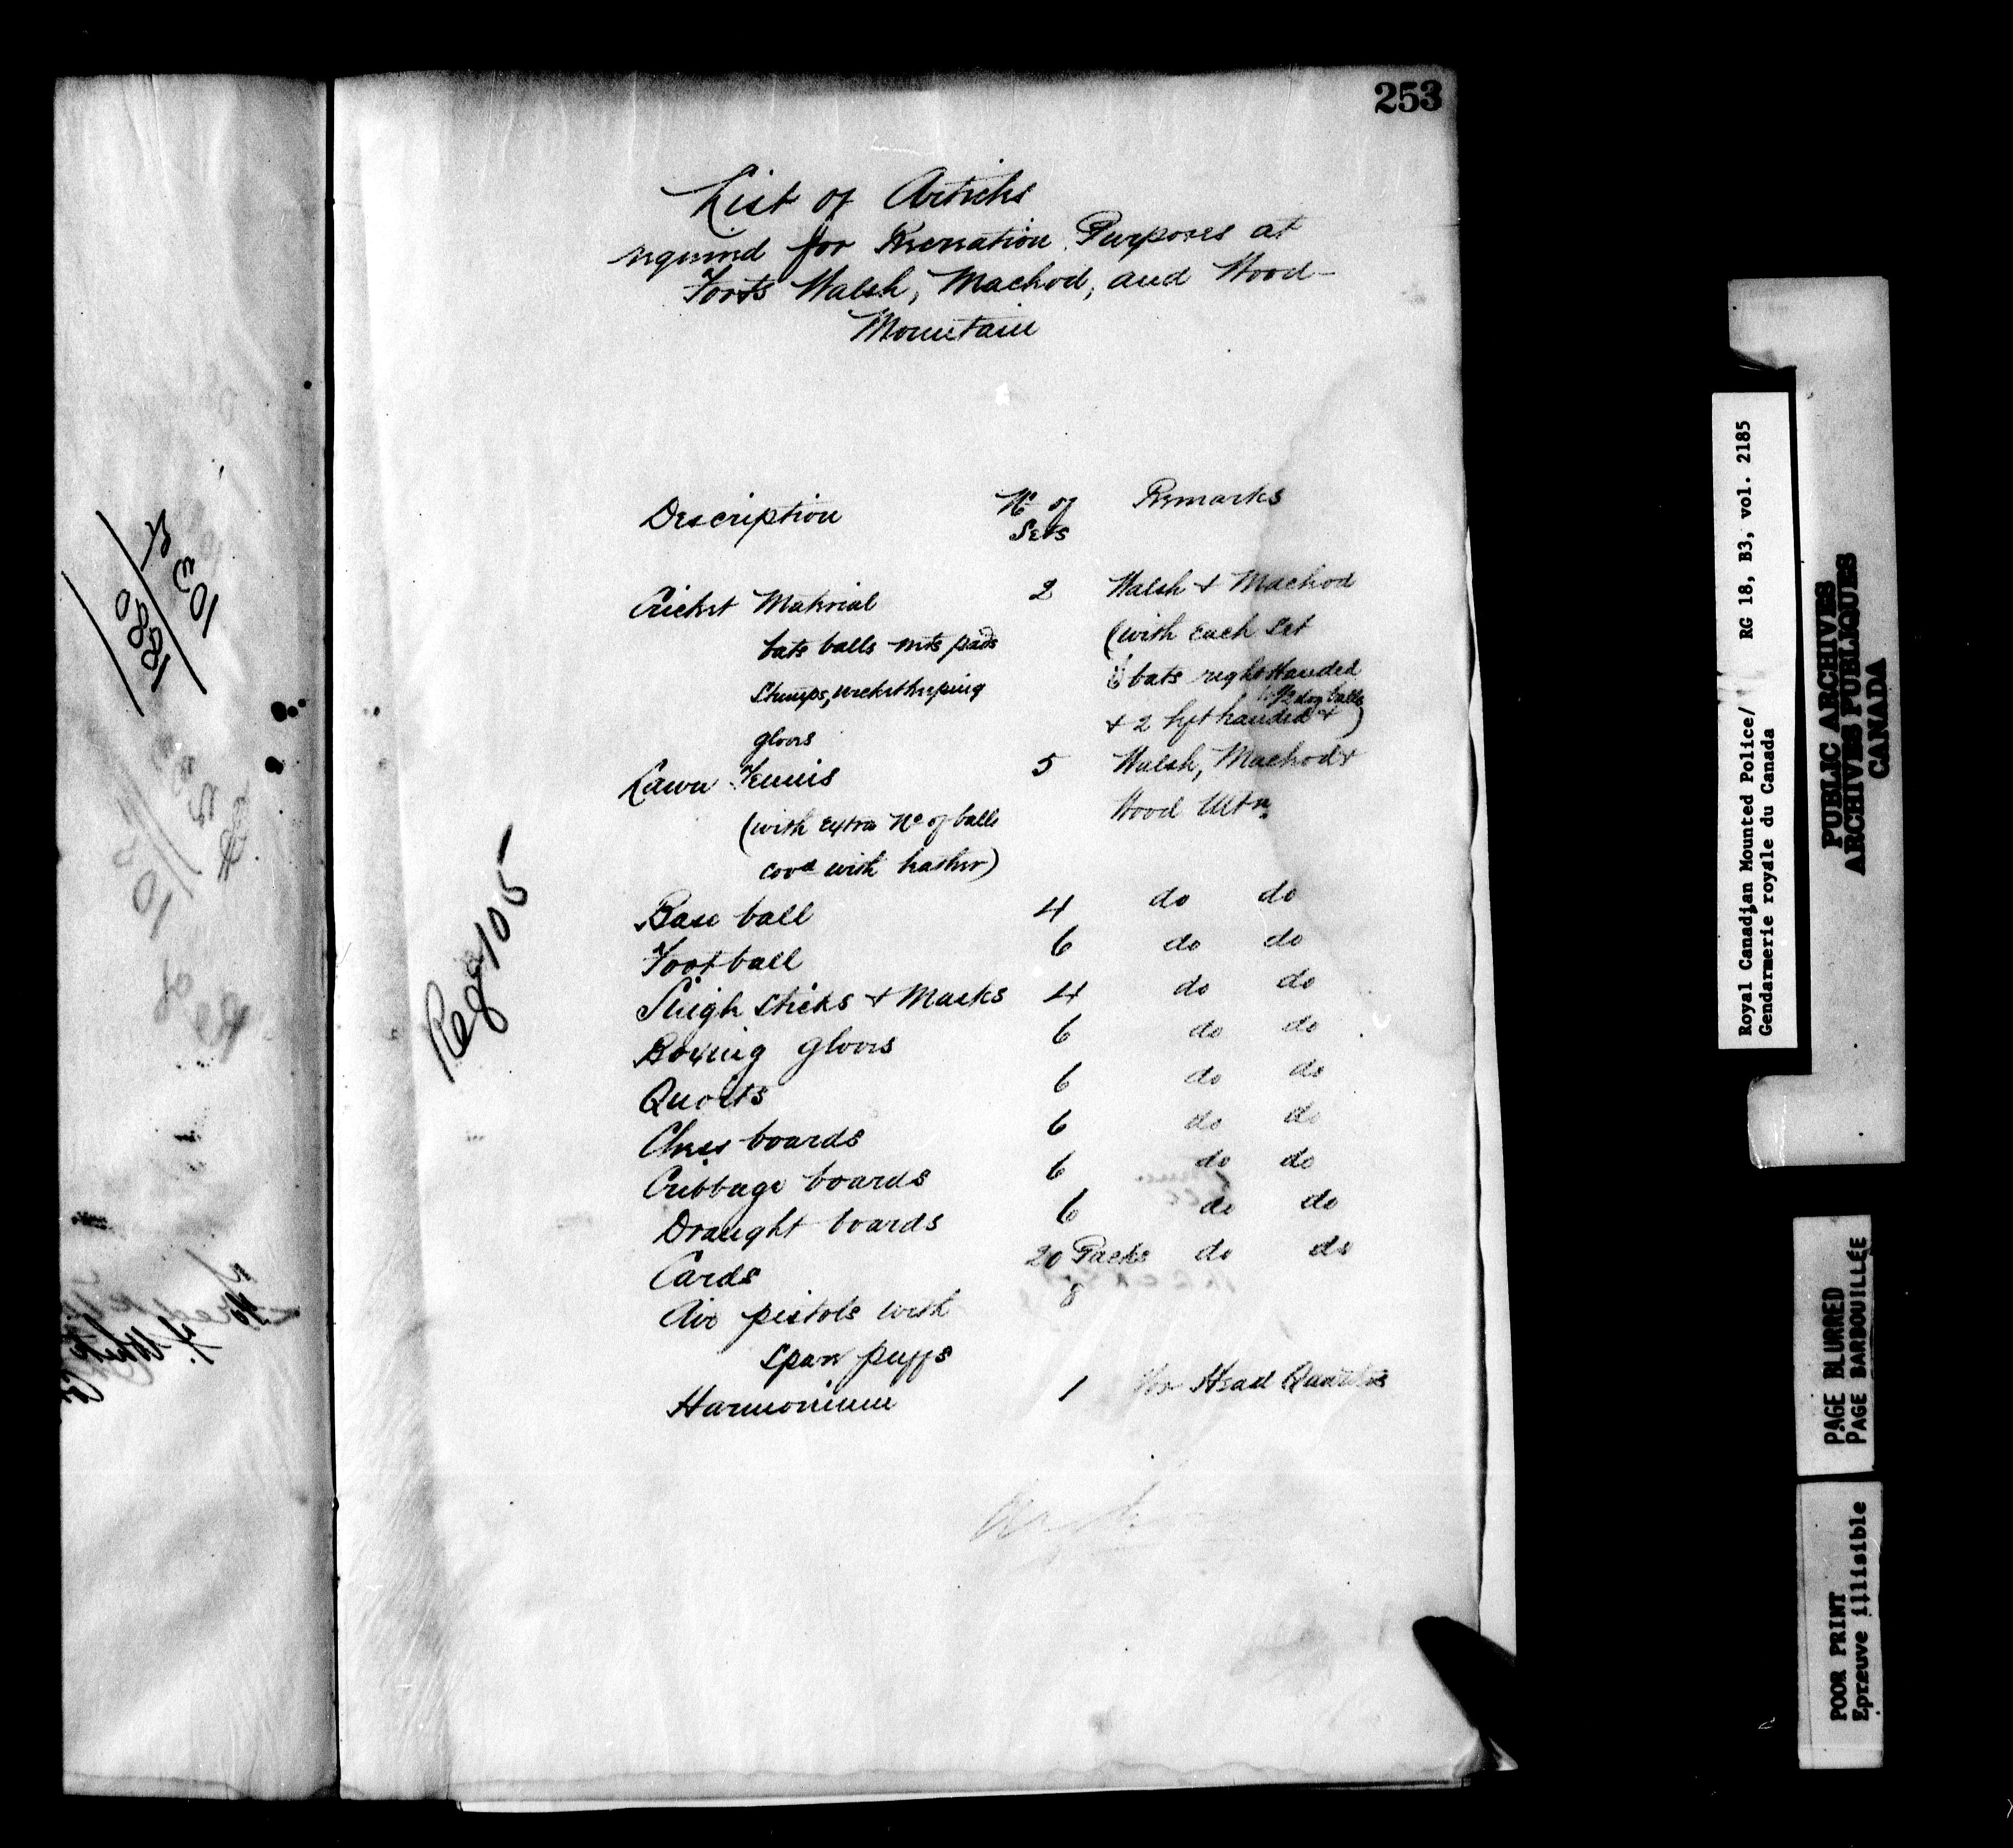 253
List of Articles
required for Recreation Purposes at
Forts Walsh, Macleod, and Wood
Mountain
Description Nº of Sets Remarks
Cricket Material 2 Walsh + Macleod
bats balls nets pads (with each set
Stumps, wicketkeeping 6 bats right Handed
1/2 doz balls
gloves + 2 left handed + )
Lawn Tennis 5 Walsh, Macleod +
(with extra Nº of balls Wood Mtn.
covd with leather)
Base ball 4 do do
Football 6 do do
Single Sticks + Masks 4 do do
Boxing gloves 6 do do
Quoits 6 do do
Chess boards 6 do do
Cribbage boards 6 do do
Draught boards 6 do do
Cards 20 Packs do do
Air pistols with 8
Spare puffs
Harmonium 1 for Head Quarters
Reg 105
103
1880
Royal Canadian Mounted Police/ RG 18, B3, vol. 2185
Gendarmerie royale du Canada
PUBLIC ARCHIVES
ARCHIVES PUBLIQUES
CANADA
PAGE BLURRED
PAGE BARBOUILLÉE
POOR PRINT
Epreuve illisible